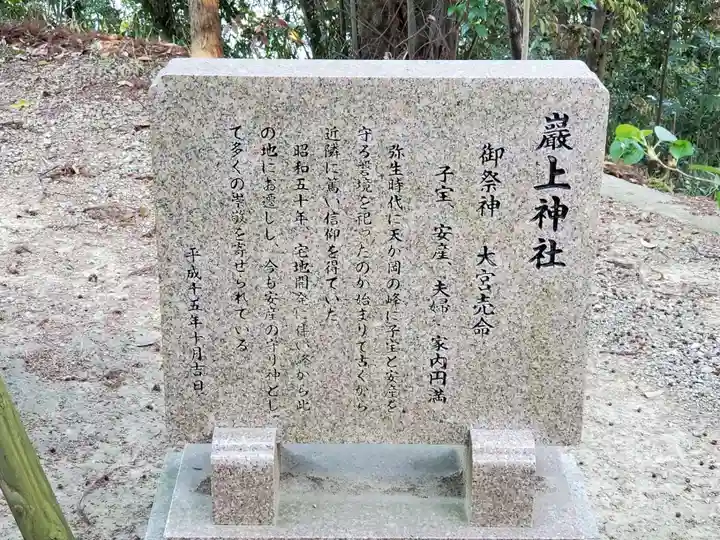 巖上神社
御祭神　大宮売命
子宝、安産、夫婦、家内円満
弥生時代に天が岡の峰に子宝と安産を
守る磐境を祀ったのが始まりで古くから
近隣に篤い信仰を得ていた
昭和五十年、宅地開発に伴い峰から此
の地にお遷しし、今も安産の守り神とし
て多くの崇敬を寄せられている
平成十五年十月吉日